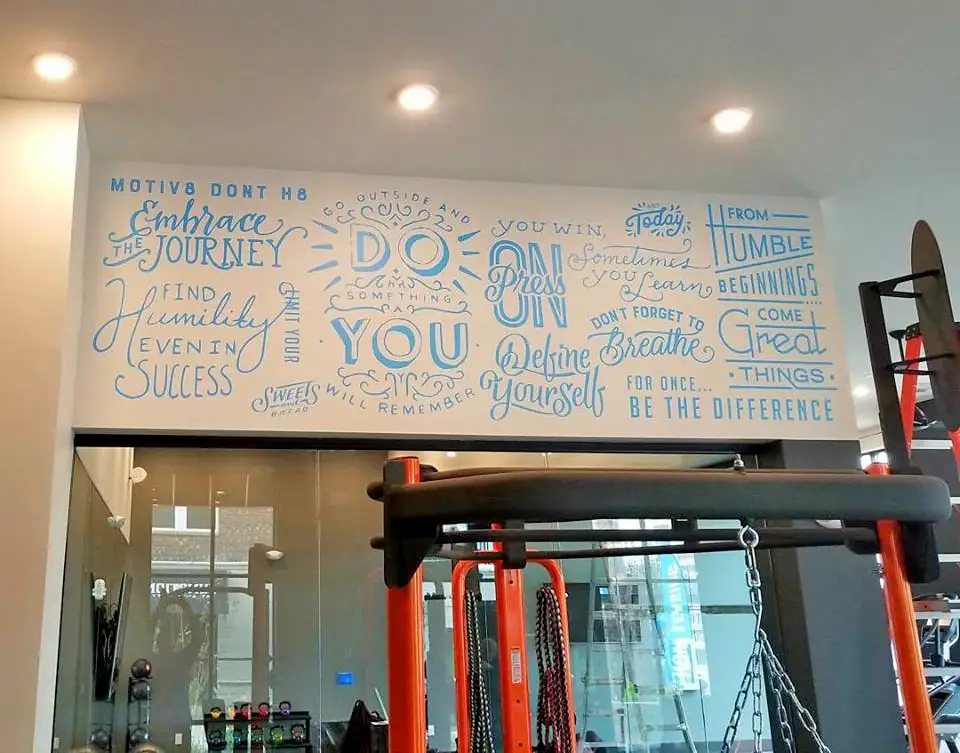 MOTIV8 DONT H8
Embrace
THE JOURNEY
FIND
Humility
EVEN IN
SUCCESS
YOUR
SWEETS
and
BREAD
GO OUTSIDE AND
DO
SOMETHING
YOU
WILL REMEMBER
YOU WIN,
Sometimes
you Learn
ON
Press
ON
Define
Yourself
Today
DON'T FORGET TO
Breathe
FOR ONCE...
BE THE DIFFERENCE
FROM
HUMBLE
BEGINNINGS....
COME
Great
THINGS